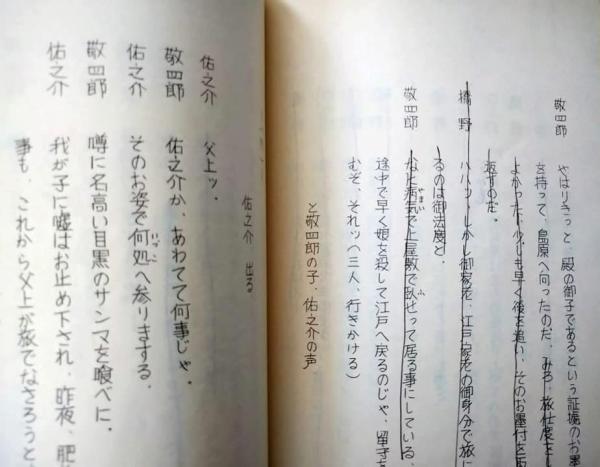 敬四郎　やはりきっと、殿の御子であるという証拠のお墨
を持って、島原へ向ったのだ。みろ、旅仕度を
よかった、少しも早く後を追い、そのお墨付を
返すのだ。
橋野　ハハッ、しかし御家老、江戸家老の御身分で旅に
るのは御法度と、
敬四郎　なに病気で上屋敷で臥せって居る事にしている、
途中で早く娘を殺して江戸へ戻るのじゃ、留守を
むぞ、それッ（三人、行きかける）
と敬四郎の子、佑之介の声
佑之介　父上ッ。
佑之介　出る
敬四郎　佑之介か、あわてて何事じゃ。
佑之介　そのお姿で何処へ参りまする。
敬四郎　噂に名高い目黒のサンマを喰べに。
佑之介　我が子に嘘はお止め下され、昨夜、肥
事も、これから父上が旅でなさろうと